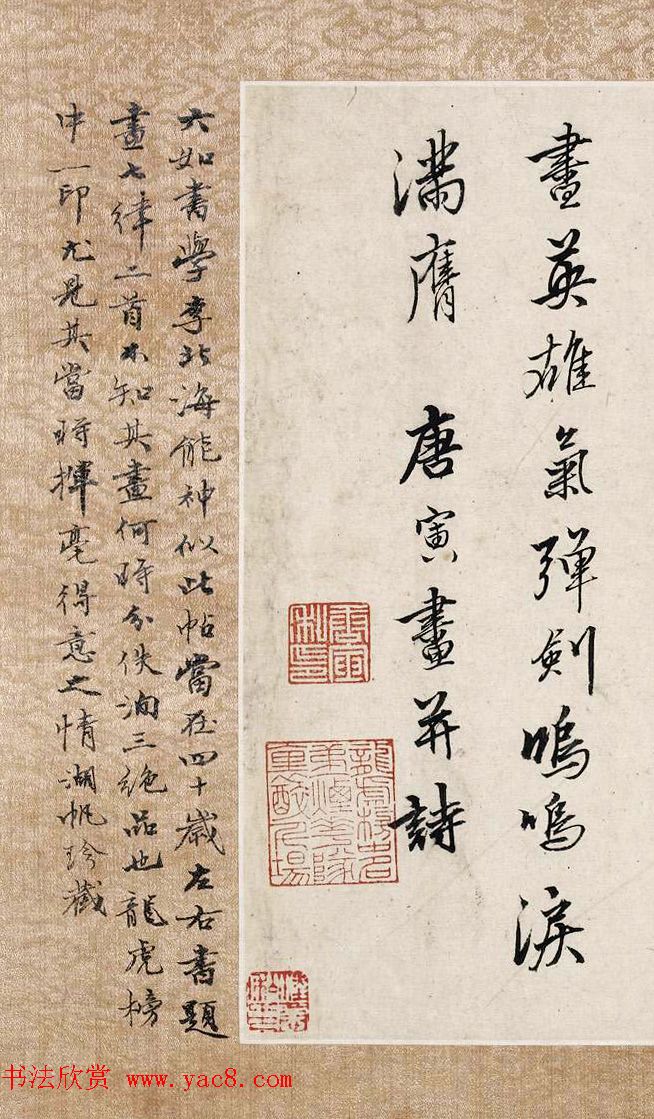 畫英雄氣彈劍嗚嗚淚
滿膺 唐寅畫并詩
六如書學李北海能神似此帖當在四十歲左右書題
畫七律二首不知其畫何時分佚洵三絕品也龍虎榜
中一印尤見其當時揮毫得意之情湖帆珍藏
书法欣赏 www.yac8.com